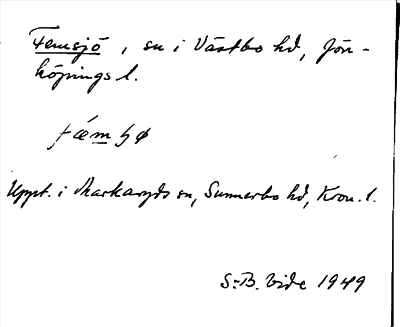 Femsjö, sn i Västbo hd, Jön-
köpings l.
fæmɧø
Uppt. i Markaryds sn, Sunnerbo hd, Kron. l.
S-B. Vide 1949